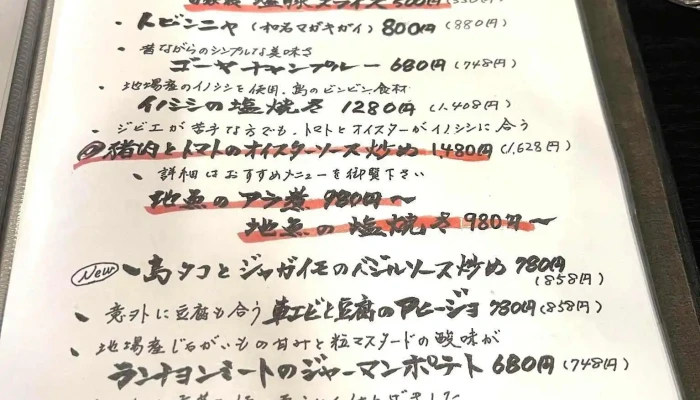 塩豚 スライス 500円(550円)
・トビンニャ(和名マガキガイ) 800円(880円)
・昔ながらのシンプルな美味さ
ゴーヤチャンプルー 680円(748円)
・地場産のイノシシを使用、島のビンビン食材
イノシシの塩焼き 1280円(1,408円)
・ジビエが苦手な方でも、トマトとオイスターがイノシシに合う
猪肉とトマトのオイスターソース炒め 1,480円(1,628円)
・詳細はおすすめメニューを御覧下さい
地魚のアラ煮 980円〜
地魚の塩焼き 980円〜
New 島タコとジャガイモのバジルソース炒め 780円
(858円)
・意外に豆腐も合う 車エビと豆腐のアヒージョ 780円(858円)
・地場産じゃがいもの甘みと粒マスタードの酸味が
ランチョンミートのジャーマンポテト 680円(748円)